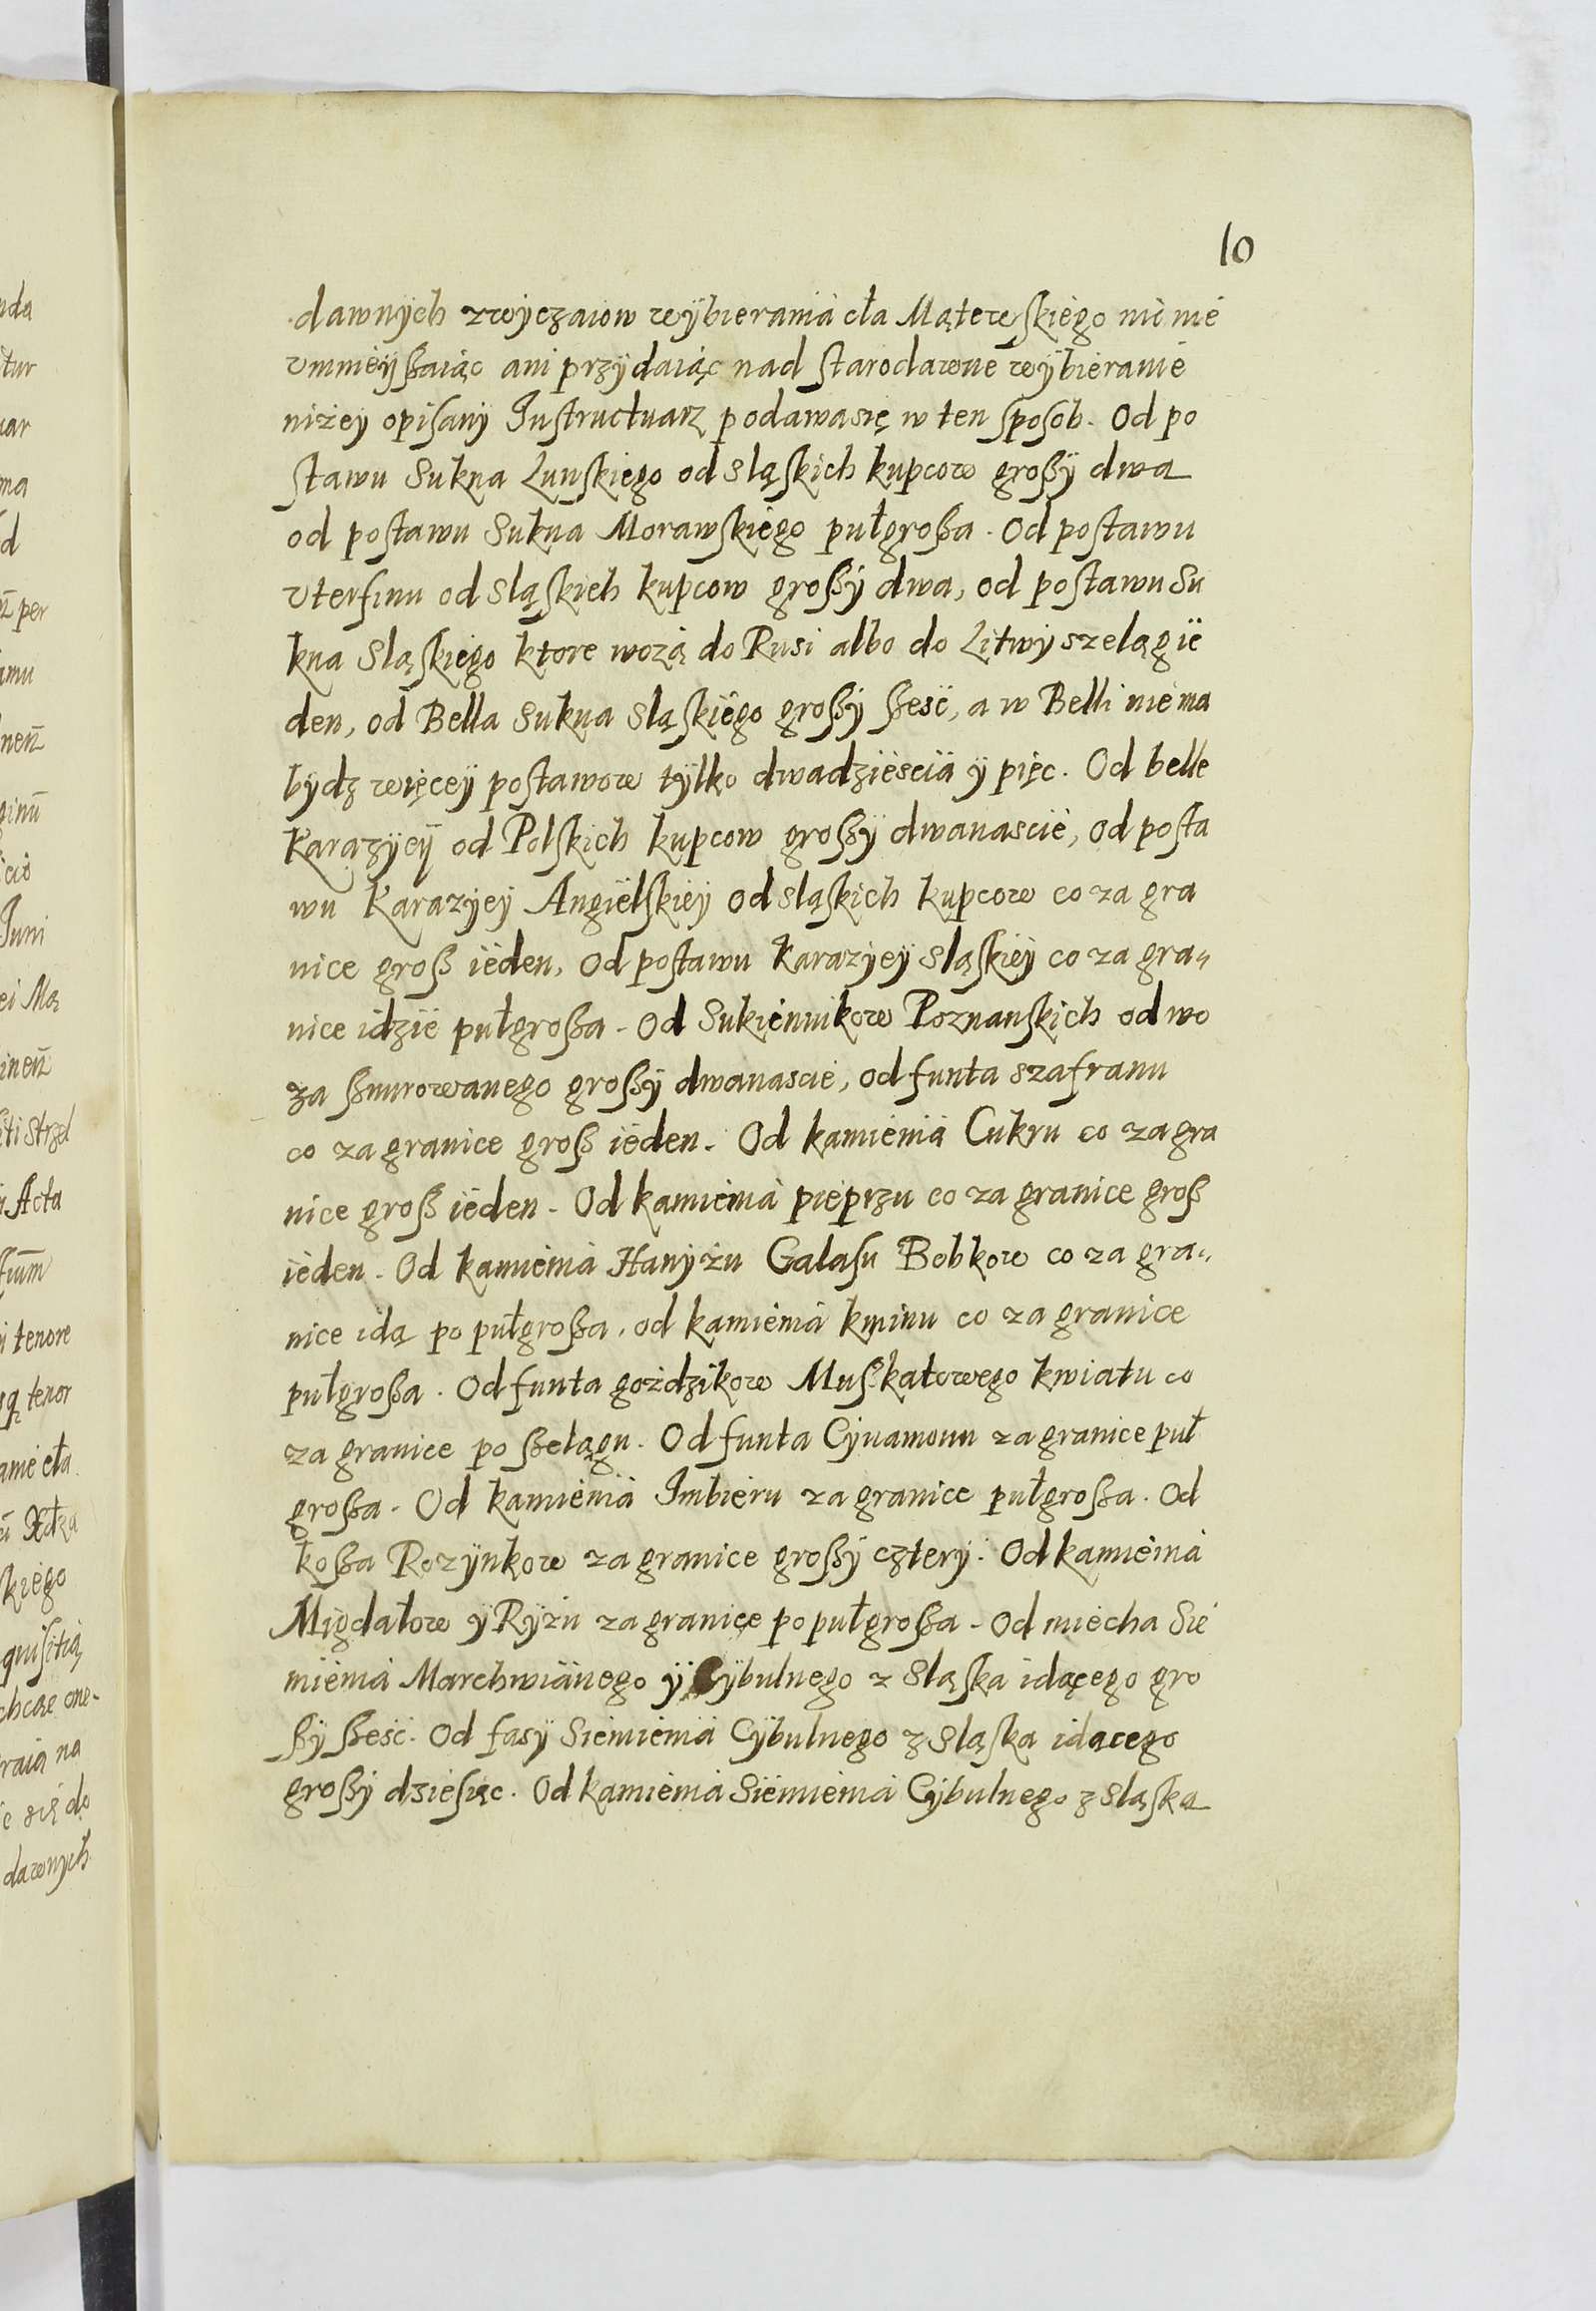 10
dawnych zwyczaiow wybierania cła Mątewskiego nic nie
vmnieyßaiąc ani przydaiąc nad starodawne wybieranie
niżey opisany Instructuarz podawasię w ten sposob. Od po
stawu Sukna Lunskiego od sląskich kupcow großy dwa
od postawu Sukna Morawskiego pułgroßa. Od postawu
Vterfinu od sląskich kupcow großy dwa, od postawu Su
kna Sląskiego ktore wożą do Rusi albo do Litwy szeląg ie
den, od Bella Sukna sląskiego großy ßesc, a w Belli nie ma
bydz więcey postawow tylko dwadziescia y pięc. Od belle
Karazyey od Polskich kupcow großy dwanascie, od posta
wu Karazyey Angielskiey od sląskich kupcow co za gra
nice groß ieden, Od postawu Karazyey sląskiey co za gra„
nice idzie pułgroßa. Od Sukiennikow Poznanskich od wo
za ßnurowanego großy dwanascie, od funta szafranu
co za granice groß ieden. Od kamienia Cukru co za gra
nice groß ieden. Od kamienia pieprzu co za granice groß
ieden. Od kamienia Hanyżu Galasu Bobkow co za gra„
nice idą po pułgroßa, od kamienia kminu co za granice
pułgroßa. Od funta goździkow Mußkatowego kwiatu co
za granice po ßelągu. Od funta Cynamonu za granice puł
großa. Od kamienia Imbieru za granice pułgroßa. Od
koßa Rozynkow za granice großy cztery. Od kamienia
Migdałow y Ryżu za granice po pułgroßa. Od miecha Sie
mienia Marchwianego y Cybulnego z Sląska idącego gro
ßy ßesc. Od fasy Siemienia Cybulnego z Sląska idacego
großy dziesięc. Od kamienia Siemienia Cybulnego z Sląska